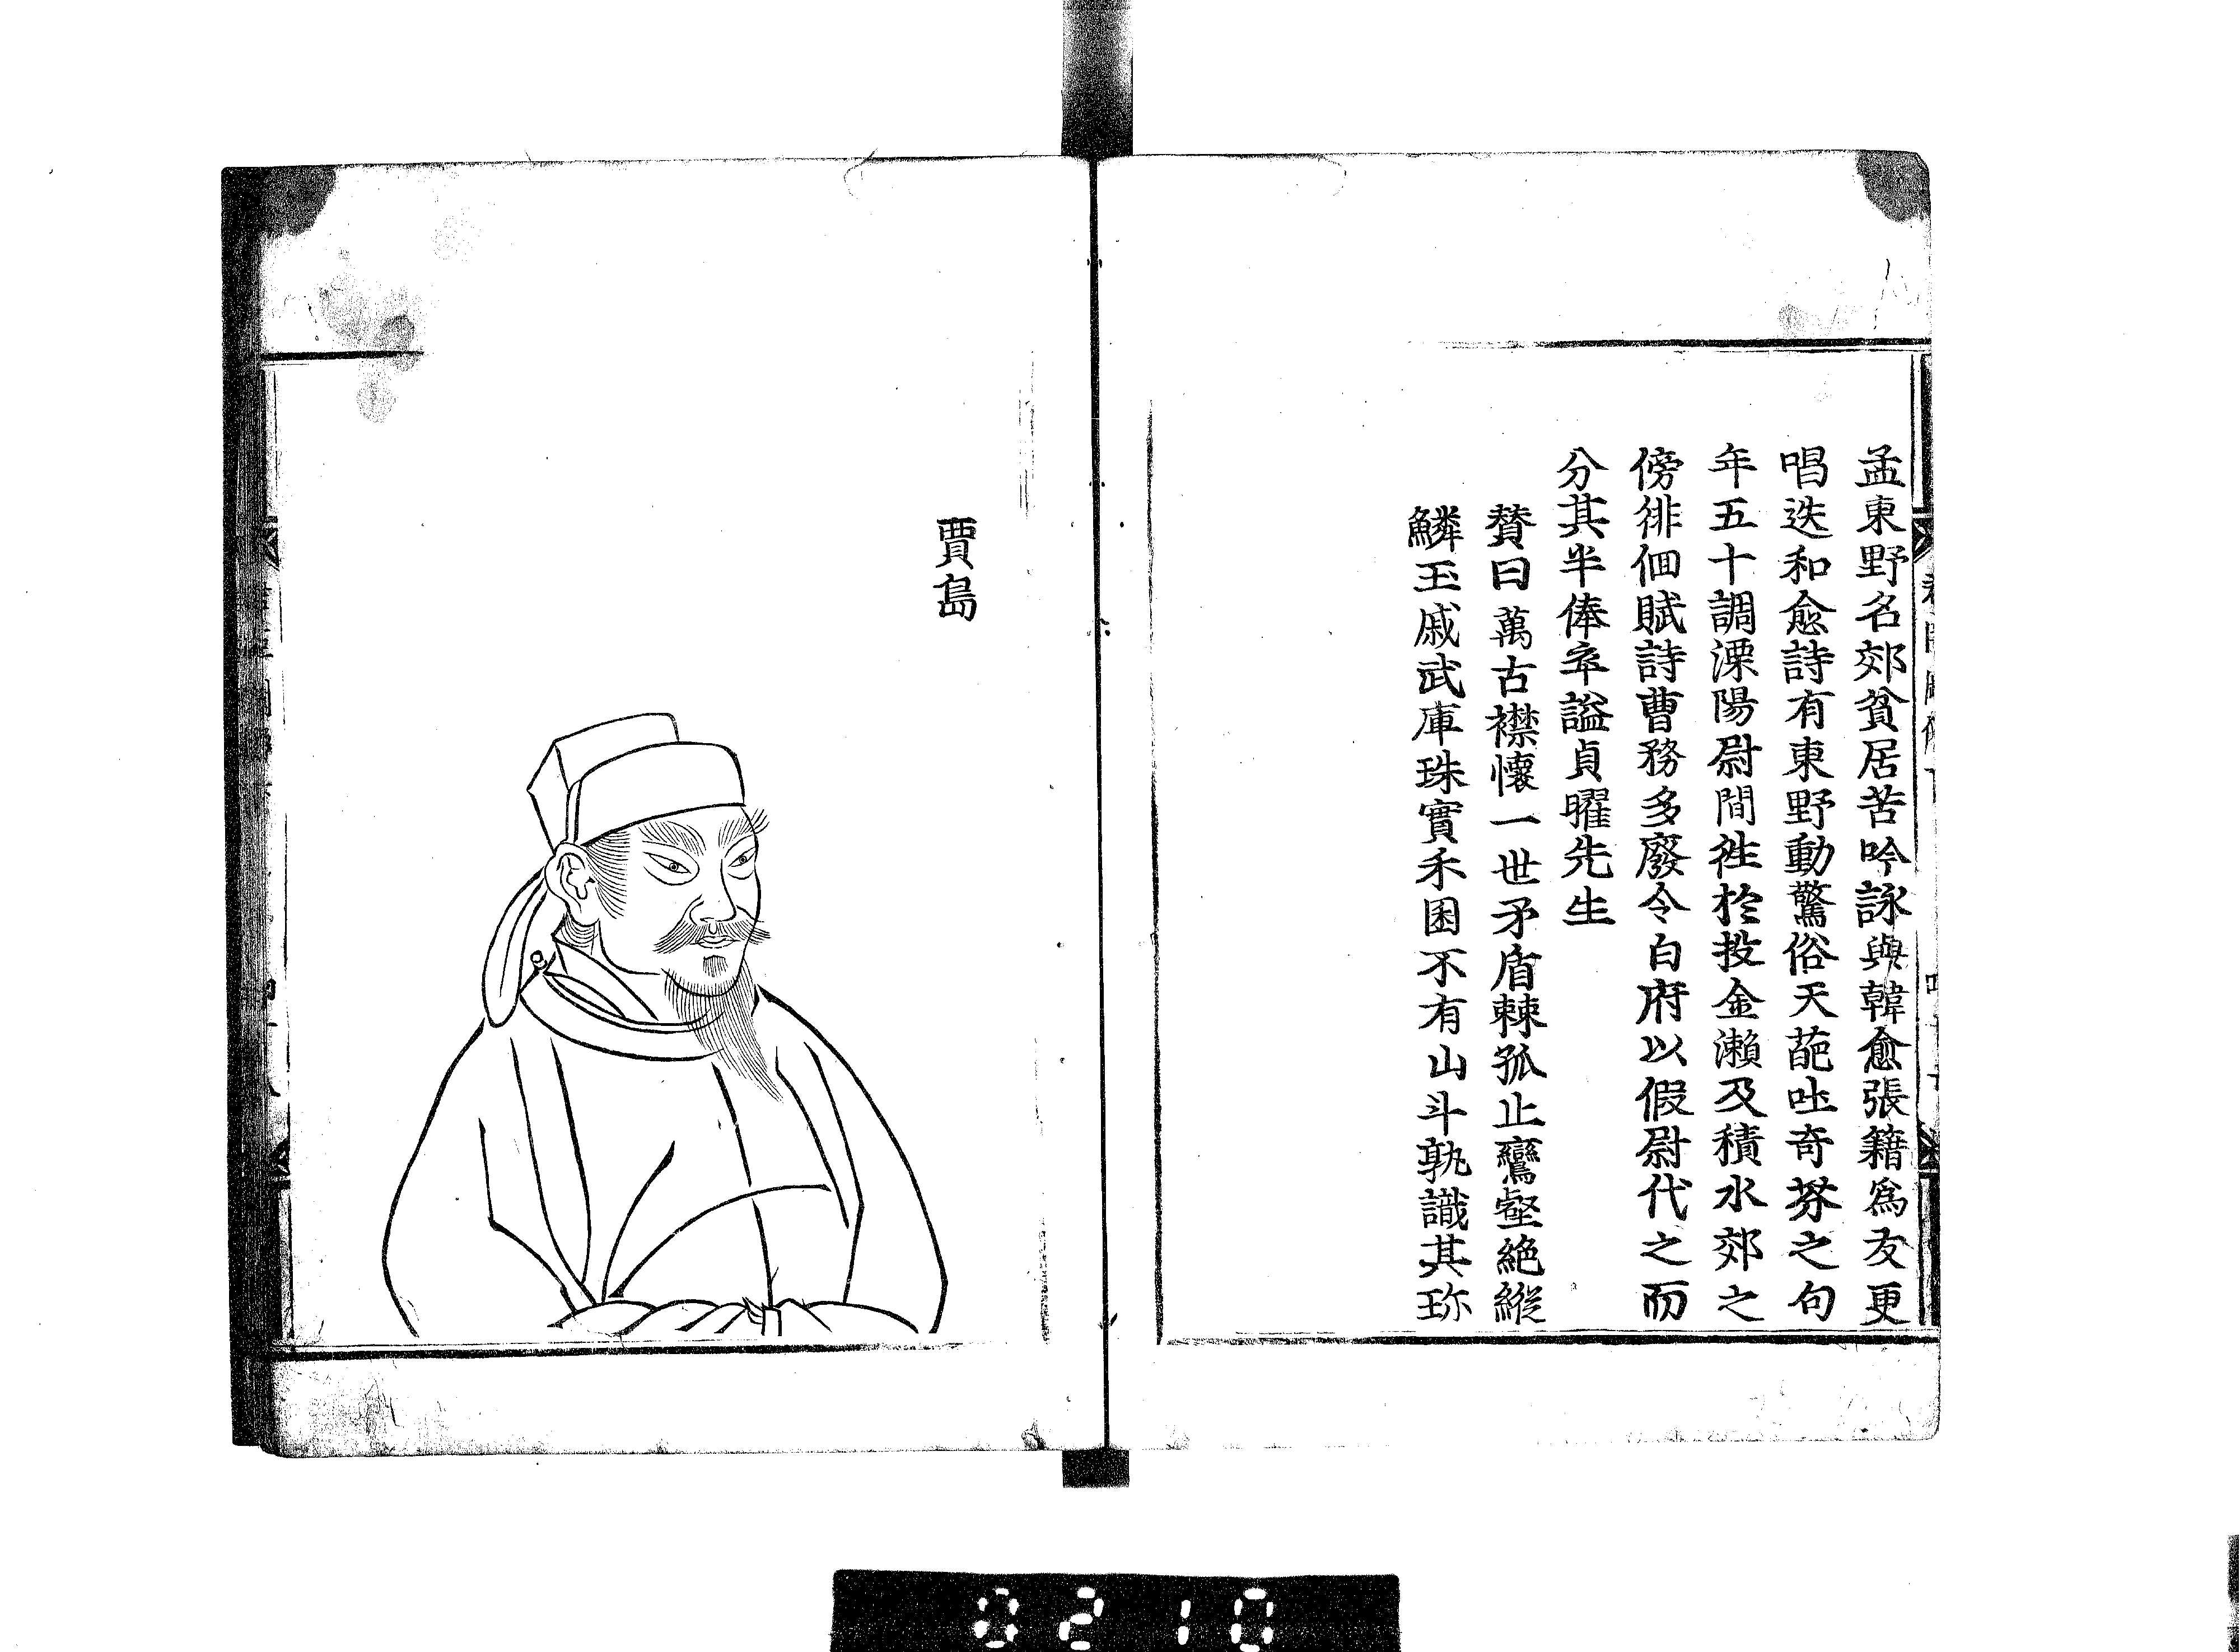 孟東野名郊貧居苦吟詠與韓愈張籍爲友更
唱迭和愈詩有東野動驚俗天葩吐奇芬之句
年五十調溧陽尉間徃於投金瀨及積水郊之
傍徘佪賦詩曹務多廢令白府以假尉代之而
分其半俸卒謚貞曜先生
賛曰萬古襟懷一世矛盾棘孤止鸞壑絶縱
鱗玉戚武庫珠實禾囷不有山斗孰識其珎
賈島
0210